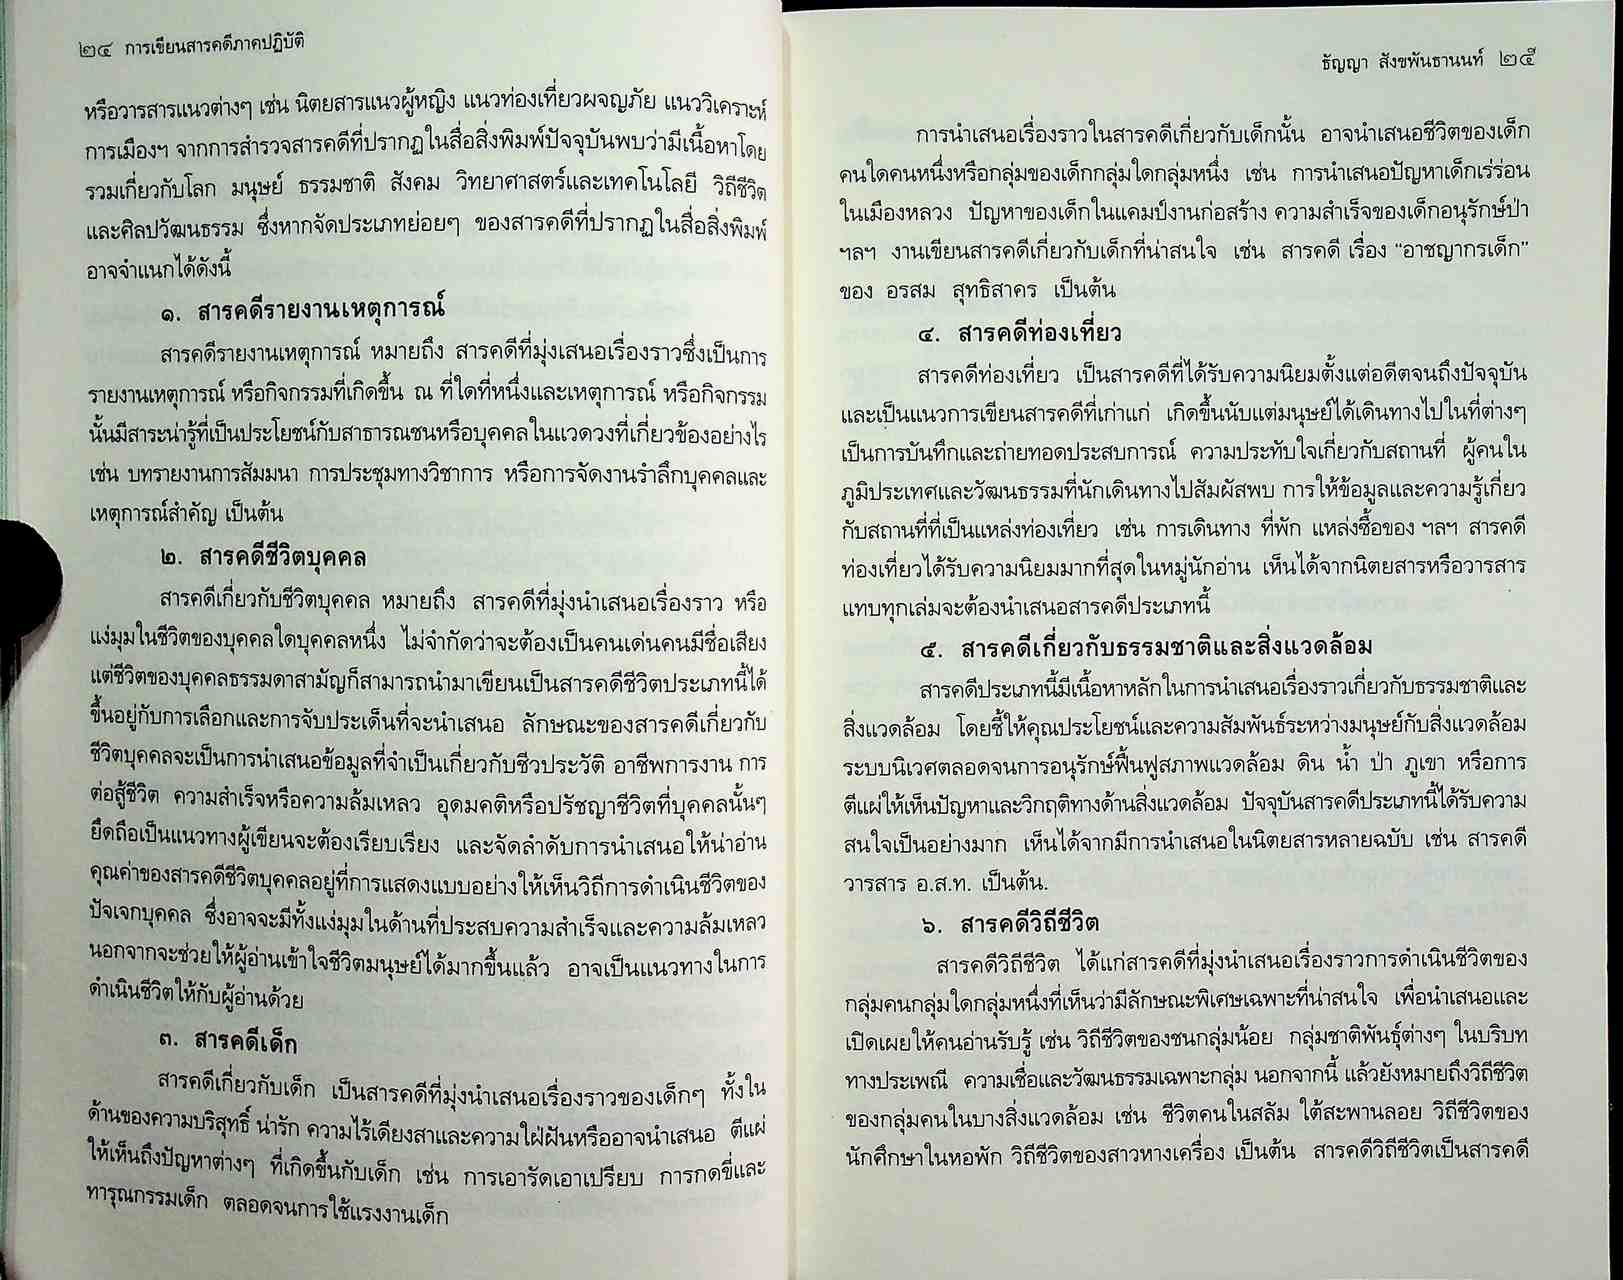 ๒๔ การเขียนสารคดีภาคปฏิบัติ
หรือวารสารแนวต่างๆ เช่น นิตยสารแนวผู้หญิง แนวท่องเที่ยวผจญภัย แนววิเคราะห์
การเมืองฯ จากการสำรวจสารคดีที่ปรากฏในสื่อสิ่งพิมพ์ปัจจุบันพบว่ามีเนื้อหาโดย
รวมเกี่ยวกับโลก มนุษย์ ธรรมชาติ สังคม วิทยาศาสตร์และเทคโนโลยี วิถีชีวิต
และศิลปวัฒนธรรม ซึ่งหากจัดประเภทย่อยๆ ของสารคดีที่ปรากฏในสื่อสิ่งพิมพ์
อาจจำแนกได้ดังนี้
๑. สารคดีรายงานเหตุการณ์
สารคดีรายงานเหตุการณ์ หมายถึง สารคดีที่มุ่งเสนอเรื่องราวซึ่งเป็นการ
รายงานเหตุการณ์ หรือกิจกรรมที่เกิดขึ้น ณ ที่ใดที่หนึ่งและเหตุการณ์ หรือกิจกรรม
นั้นมีสาระน่ารู้ที่เป็นประโยชน์กับสาธารณชนหรือบุคคลในแวดวงที่เกี่ยวข้องอย่างไร
เช่น บทรายงานการสัมมนา การประชุมทางวิชาการ หรือการจัดงานรำลึกบุคคลและ
เหตุการณ์สำคัญ เป็นต้น
๒. สารคดีชีวิตบุคคล
สารคดีเกี่ยวกับชีวิตบุคคล หมายถึง สารคดีที่มุ่งนำเสนอเรื่องราว หรือ
แง่มุมในชีวิตของบุคคลใดบุคคลหนึ่ง ไม่จำกัดว่าจะต้องเป็นคนเด่นคนมีชื่อเสียง
แต่ชีวิตของบุคคลธรรมดาสามัญก็สามารถนำมาเขียนเป็นสารคดีชีวิตประเภทนี้ได้
ขึ้นอยู่กับการเลือกและการจับประเด็นที่จะนำเสนอ ลักษณะของสารคดีเกี่ยวกับ
ชีวิตบุคคลจะเป็นการนำเสนอข้อมูลที่จำเป็นเกี่ยวกับชีวประวัติ อาชีพการงาน การ
ต่อสู้ชีวิต ความสำเร็จหรือความล้มเหลว อุดมคติหรือปรัชญาชีวิตที่บุคคลนั้นๆ
ยึดถือเป็นแนวทางผู้เขียนจะต้องเรียบเรียง และจัดลำดับการนำเสนอให้น่าอ่าน
คุณค่าของสารคดีชีวิตบุคคลอยู่ที่การแสดงแบบอย่างให้เห็นวิถีการดำเนินชีวิตของ
ปัจเจกบุคคล ซึ่งอาจจะมีทั้งแง่มุมในด้านที่ประสบความสำเร็จและความล้มเหลว
นอกจากจะช่วยให้ผู้อ่านเข้าใจชีวิตมนุษย์ได้มากขึ้นแล้ว อาจเป็นแนวทางในการ
ดำเนินชีวิตให้กับผู้อ่านด้วย
๓. สารคดีเด็ก
สารคดีเกี่ยวกับเด็ก เป็นสารคดีที่มุ่งนำเสนอเรื่องราวของเด็กๆ ทั้งใน
ด้านของความบริสุทธิ์ น่ารัก ความไร้เดียงสาและความใฝ่ฝันหรืออาจนำเสนอ ตีแผ่
ให้เห็นถึงปัญหาต่างๆ ที่เกิดขึ้นกับเด็ก เช่น การเอารัดเอาเปรียบ การกดขี่และ
ทารุณกรรมเด็ก ตลอดจนการใช้แรงงานเด็ก
ธัญญา สังขพันธานนท์ ๒๕
การนำเสนอเรื่องราวในสารคดีเกี่ยวกับเด็กนั้น อาจนำเสนอชีวิตของเด็ก
คนใดคนหนึ่งหรือกลุ่มของเด็กกลุ่มใดกลุ่มหนึ่ง เช่น การนำเสนอปัญหาเด็กเร่ร่อน
ในเมืองหลวง ปัญหาของเด็กในแคมป์งานก่อสร้าง ความสำเร็จของเด็กอนุรักษ์ป่า
ฯลฯ งานเขียนสารคดีเกี่ยวกับเด็กที่น่าสนใจ เช่น สารคดี เรื่อง “อาชญากรเด็ก”
ของ อรสม สุทธิสาคร เป็นต้น
๔. สารคดีท่องเที่ยว
สารคดีท่องเที่ยว เป็นสารคดีที่ได้รับความนิยมตั้งแต่อดีตจนถึงปัจจุบัน
และเป็นแนวการเขียนสารคดีที่เก่าแก่ เกิดขึ้นนับแต่มนุษย์ได้เดินทางไปในที่ต่างๆ
เป็นการบันทึกและถ่ายทอดประสบการณ์ ความประทับใจเกี่ยวกับสถานที่ ผู้คนใน
ภูมิประเทศและวัฒนธรรมที่นักเดินทางไปสัมผัสพบ การให้ข้อมูลและความรู้เกี่ยว
กับสถานที่ที่เป็นแหล่งท่องเที่ยว เช่น การเดินทาง ที่พัก แหล่งซื้อของ ฯลฯ สารคดี
ท่องเที่ยวได้รับความนิยมมากที่สุดในหมู่นักอ่าน เห็นได้จากนิตยสารหรือวารสาร
แทบทุกเล่มจะต้องนำเสนอสารคดีประเภทนี้
๕. สารคดีเกี่ยวกับธรรมชาติและสิ่งแวดล้อม
สารคดีประเภทนี้มีเนื้อหาหลักในการนำเสนอเรื่องราวเกี่ยวกับธรรมชาติและ
สิ่งแวดล้อม โดยชี้ให้คุณประโยชน์และความสัมพันธ์ระหว่างมนุษย์กับสิ่งแวดล้อม
ระบบนิเวศตลอดจนการอนุรักษ์ฟื้นฟูสภาพแวดล้อม ดิน น้ำ ป่า ภูเขา หรือการ
ตีแผ่ให้เห็นปัญหาและวิกฤติทางด้านสิ่งแวดล้อม ปัจจุบันสารคดีประเภทนี้ได้รับความ
สนใจเป็นอย่างมาก เห็นได้จากมีการนำเสนอในนิตยสารหลายฉบับ เช่น สารคดี
วารสาร อ.ส.ท. เป็นต้น.
๖. สารคดีวิถีชีวิต
สารคดีวิถีชีวิต ได้แก่สารคดีที่มุ่งนำเสนอเรื่องราวการดำเนินชีวิตของ
กลุ่มคนกลุ่มใดกลุ่มหนึ่งที่เห็นว่ามีลักษณะพิเศษเฉพาะที่น่าสนใจ เพื่อนำเสนอและ
เปิดเผยให้คนอ่านรับรู้ เช่น วิถีชีวิตของชนกลุ่มน้อย กลุ่มชาติพันธุ์ต่างๆ ในบริบท
ทางประเพณี ความเชื่อและวัฒนธรรมเฉพาะกลุ่ม นอกจากนี้ แล้วยังหมายถึงวิถีชีวิต
ของกลุ่มคนในบางสิ่งแวดล้อม เช่น ชีวิตคนในสลัม ใต้สะพานลอย วิถีชีวิตของ
นักศึกษาในหอพัก วิถีชีวิตของสาวหางเครื่อง เป็นต้น สารคดีวิถีชีวิตเป็นสารคดี